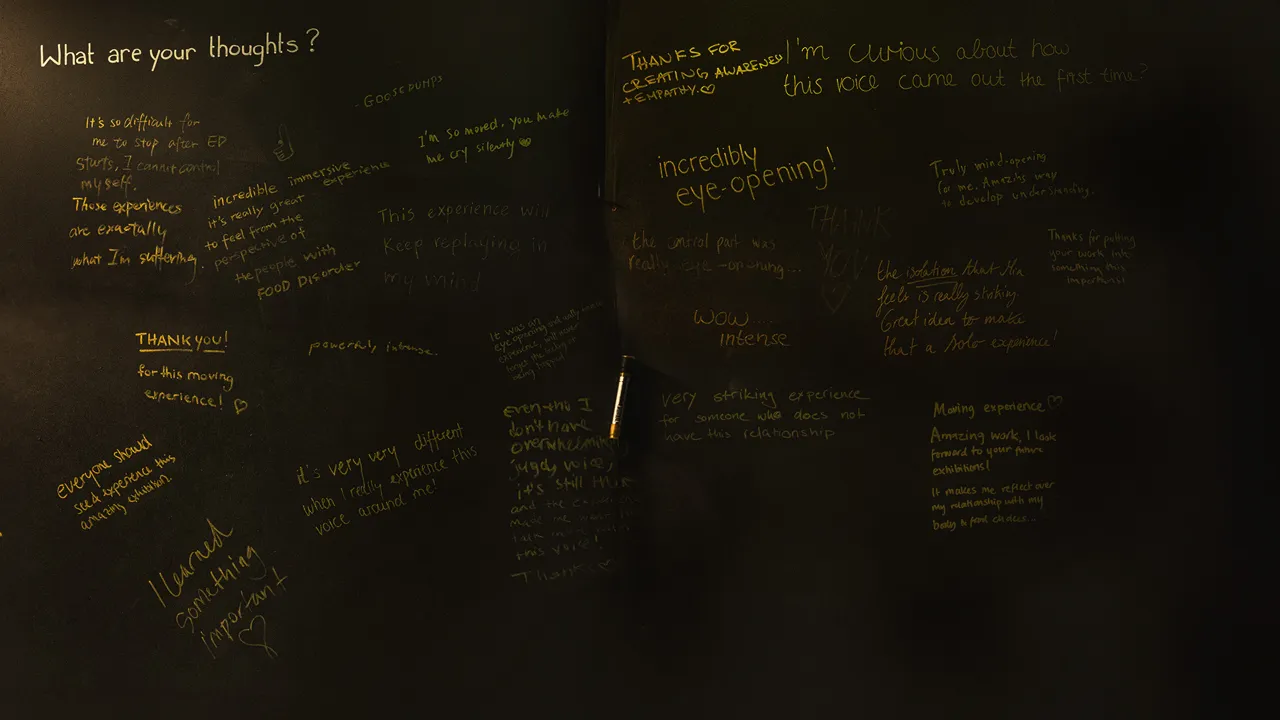 What are your thoughts?
- GOOSEBUMPS
It's so difficult for
me to stop after ED
starts, I cannt control
myself.
Those experiences
are exactally
what I'm suffering.
I'm so moved. you make
me cry silently
incredible immersive
experience
it's really great
to feel from the
perspective of
the people with
FOOD DISORDER
This experience will
Keep replaying in
my mind
THANK YOU!
for this moving
experience!
powerful, intense.
It was an
eye opening and really
experience, will never
everyone should
see & experience this
amazing exhibition.
it's very very different
when I really experience this
voice around me!
even tho I
don't have
overwhelming
judgy voice,
it's still there
and the
made me
this voice!
Thank
I learned
something
important
THANKS FOR
CREATING AWARENESS
+ EMPATHY.
I'm curious about how
this voice came out the first time?
incredibly
eye-opening!
Truly mind-opening
for me. Amazing way
to develop understanding.
THANK
YOU
the control part was
really eye-opening...
Thanks for putting
your work into
something this
important!
the isolation that
feels is really striking.
Great idea to make
that a solo experience!
WOW...
intense
very striking experience
for someone who does not
have this relationship
Moving experience
Amazing work, I look
forward to your future
exhibitions!
It makes me reflect over
my relationship with my
body & food choices...